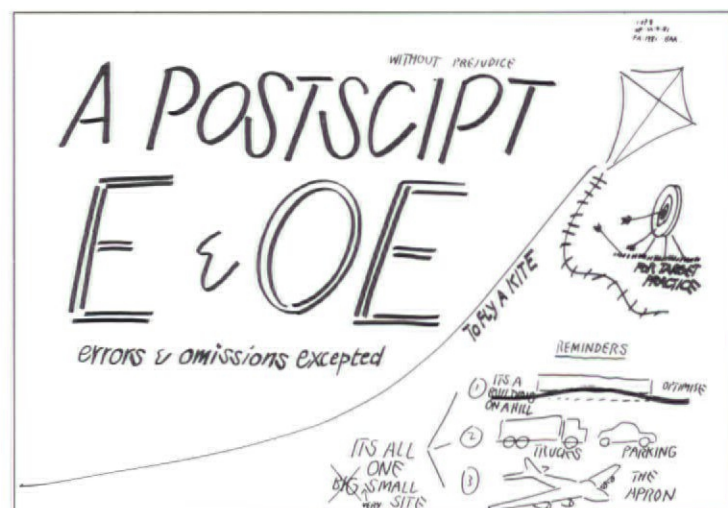 WITHOUT PREJUDICE
A POSTSCIPT
E & OE
errors & omissions excepted
TO FLY A KITE
FOR TARGET
PRACTICE
REMINDERS
1 ITS A
BUILDING
ON A HILL
OPTIMISE
2 TRUCKS PARKING
3 THE
APRON
ITS ALL
ONE
BIG SMALL
SITE